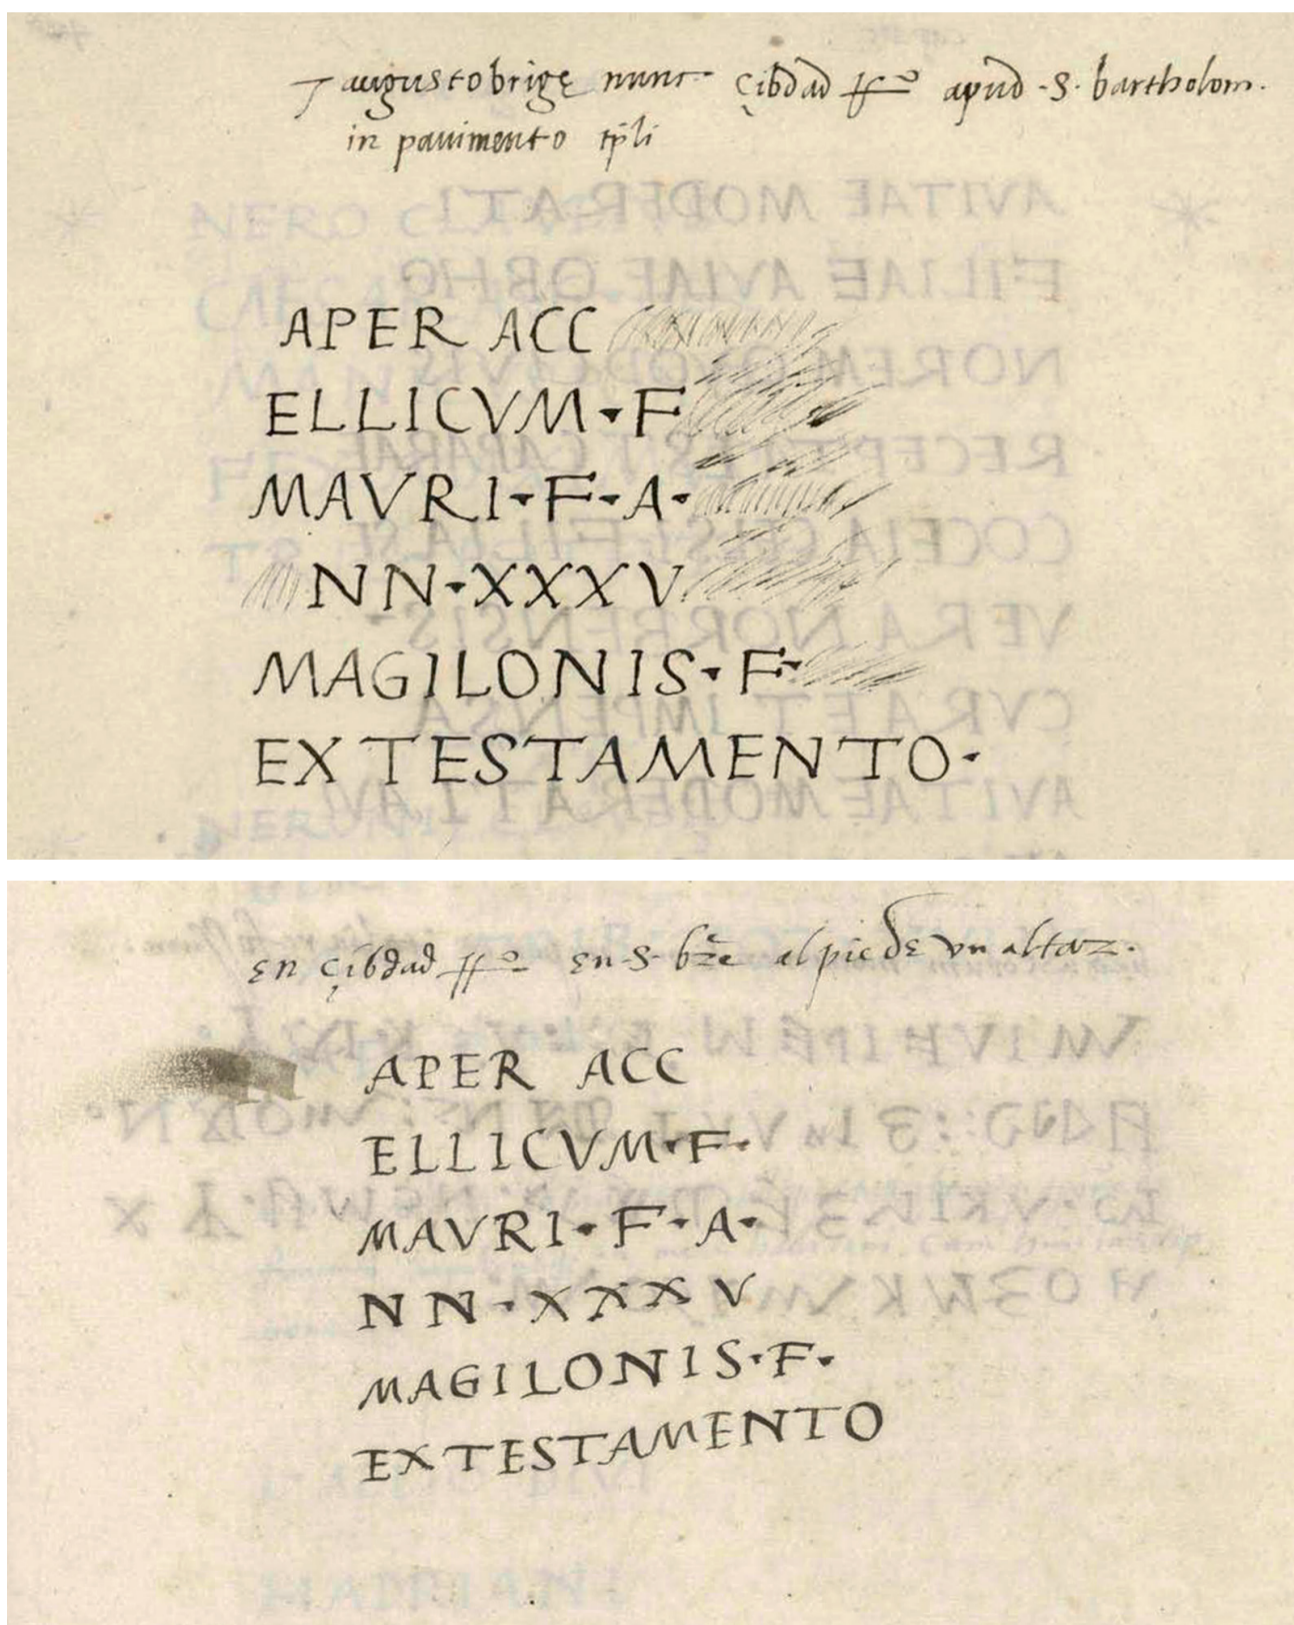 augustobrigę nunc çibdad apud .S. bartholom.
in pavimento tpli
APER ACC
ELLICVM · F
MAVRI · F · A ·
NN · XXXV
MAGILONIS · F ·
EX TESTAMENTO ·
en çibdad en .S. al pie de vn altar.
APER ACC
ELLICVM · F ·
MAVRI · F · A ·
NN · XXXV
MAGILONIS · F ·
EX TESTAMENTO